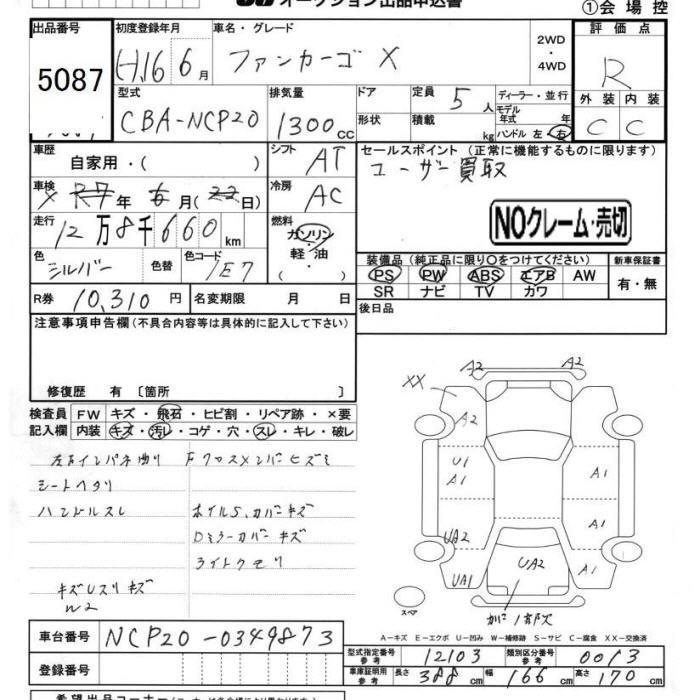 オークション出品申込書
①会場控
出品番号 初度登録年月 車名・グレード 2WD ・ 4WD 評価点
5087 H16 6月 ファンカーゴ X R
型式 排気量 ドア 定員 5人 ディーラー・並行 外装 内装
CBA-NCP20 1300cc 形状 積載 kg モデル年式 年 C C
ハンドル 左・右
車歴 自家用・( ) シフト AT セールスポイント (正常に機能するものに限ります)
ユーザー買取
車検 × R7年 6月(22日) 冷房 AC
NOクレーム・売切
走行 12万8千660km 燃料 ガソリン・軽油・( )
色 シルバー 色替 色コード 1E7
装備品 (純正品に限り○をつけてください) 新車保証書
PS PW ABS エアB AW 有・無
SR ナビ TV カワ
R券 10,310円 名変期限 月 日
後日品
注意事項申告欄(不具合内容等は具体的に記入して下さい)
修復歴 有 〔箇所 〕
検査員 FW キズ・飛石・ヒビ割・リペア跡・×要
記入欄 内装 キズ・汚レ・コゲ・穴・スレ・キレ・破レ
シートヘタリ
ハンドルスレ ホイルS,カバーキズ
Dミラーカバーキズ
ライトクモリ
W2
A2 A2
XX
A2
U1 A1
A1 A1
UA2 A1
UA1 UA2
スペア
A―キズ E―エクボ U―凹み W―補修跡 S―サビ C―腐食 XX―交換済
車台番号 NCP20-0349873
型式指定番号 参考 12103 類別区分番号 参考 0013
登録番号 車庫証明用 参考 長さ 388cm 幅 166cm 高さ 170cm